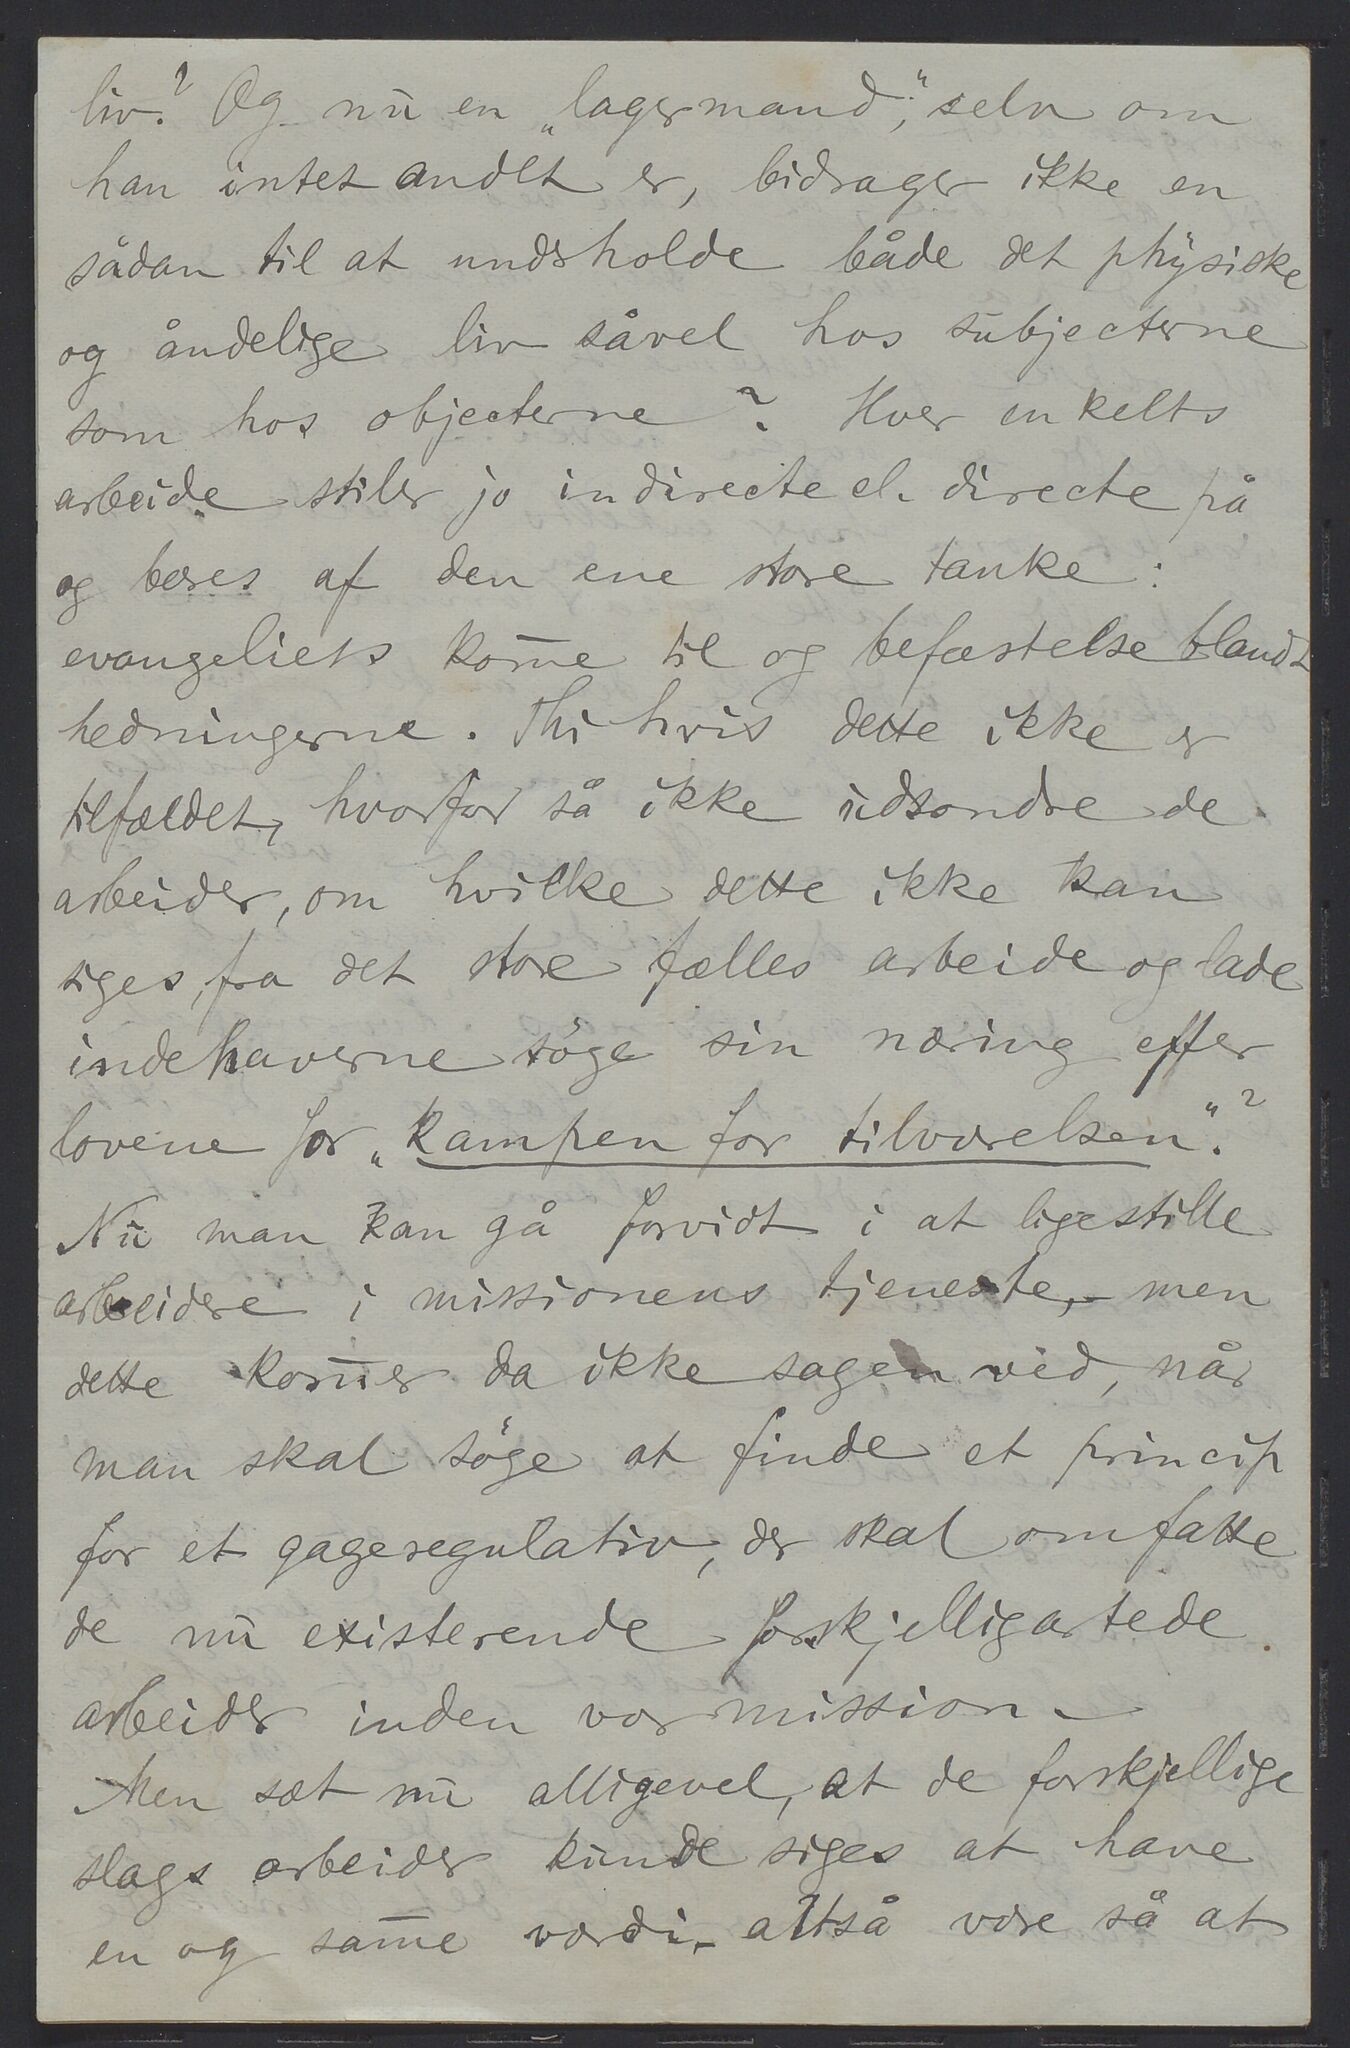 liv? Og nu en „lagermand“, selv om
han intet andet er, bidrager ikke en
sådan til at underholde både det physiske
og åndelige liv såvel hos subjecterne
som hos objecterne? Hver enkelts
arbeide stiler jo indirecte el. directe på
og bæres af den ene store tanke:
evangeliets kom̅e til og befæstelse blandt
hedningerne. Thi hvis dette ikke er
tilfældet, hvorfor så ikke udsondre de
arbeider, om hvilke dette ikke kan
siges, fra det store fælles arbeide og lade
indehaverne söge sin næring efter
lovene for „kampen for tilværelsen“?
Nu man kan gå forvidt i at ligestille
arbeidere i missionens tjeneste, – men
dette kom̅er da ikke sagen ved, når
man skal söge at finde et princip
for et gageregulativ, der skal omfatte
de nu existerende forskjelligartede
arbeider inden vor mission –
Men sæt nu alligevel, at de forskjellige
slags arbeider kunde siges at have
en og sam̅e værdi – altså være så at